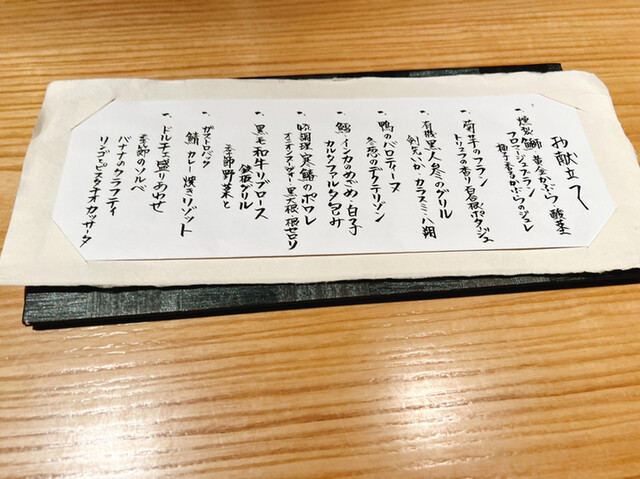 お献立て
一、燻製鰤 黄金かぶら・酸茎
フロマージュブラン
柚子香るかぶらのジュレ
一、菊芋のフラン
トリュフの香り 白石根ポタージュ
一、有機黒人参のグリル
剣先いか、カラスミ、八朔
一、鴨のバロティーヌ
冬恋のデクリネゾン
一、鱈 インカのめざめ・白子
カルタファタ包み
一、瞬間調理 寒鰆のポワレ
黒大根 根セロリ
一、黒毛和牛リブロース
鉄板グリル
季節野菜と
一、ガストロバック
鯖 カレー焼きリゾット
一、ドルチェ盛りあわせ
季節のソルベ
バナナのクラフティ
リンゴとピスタチオ カッサータ